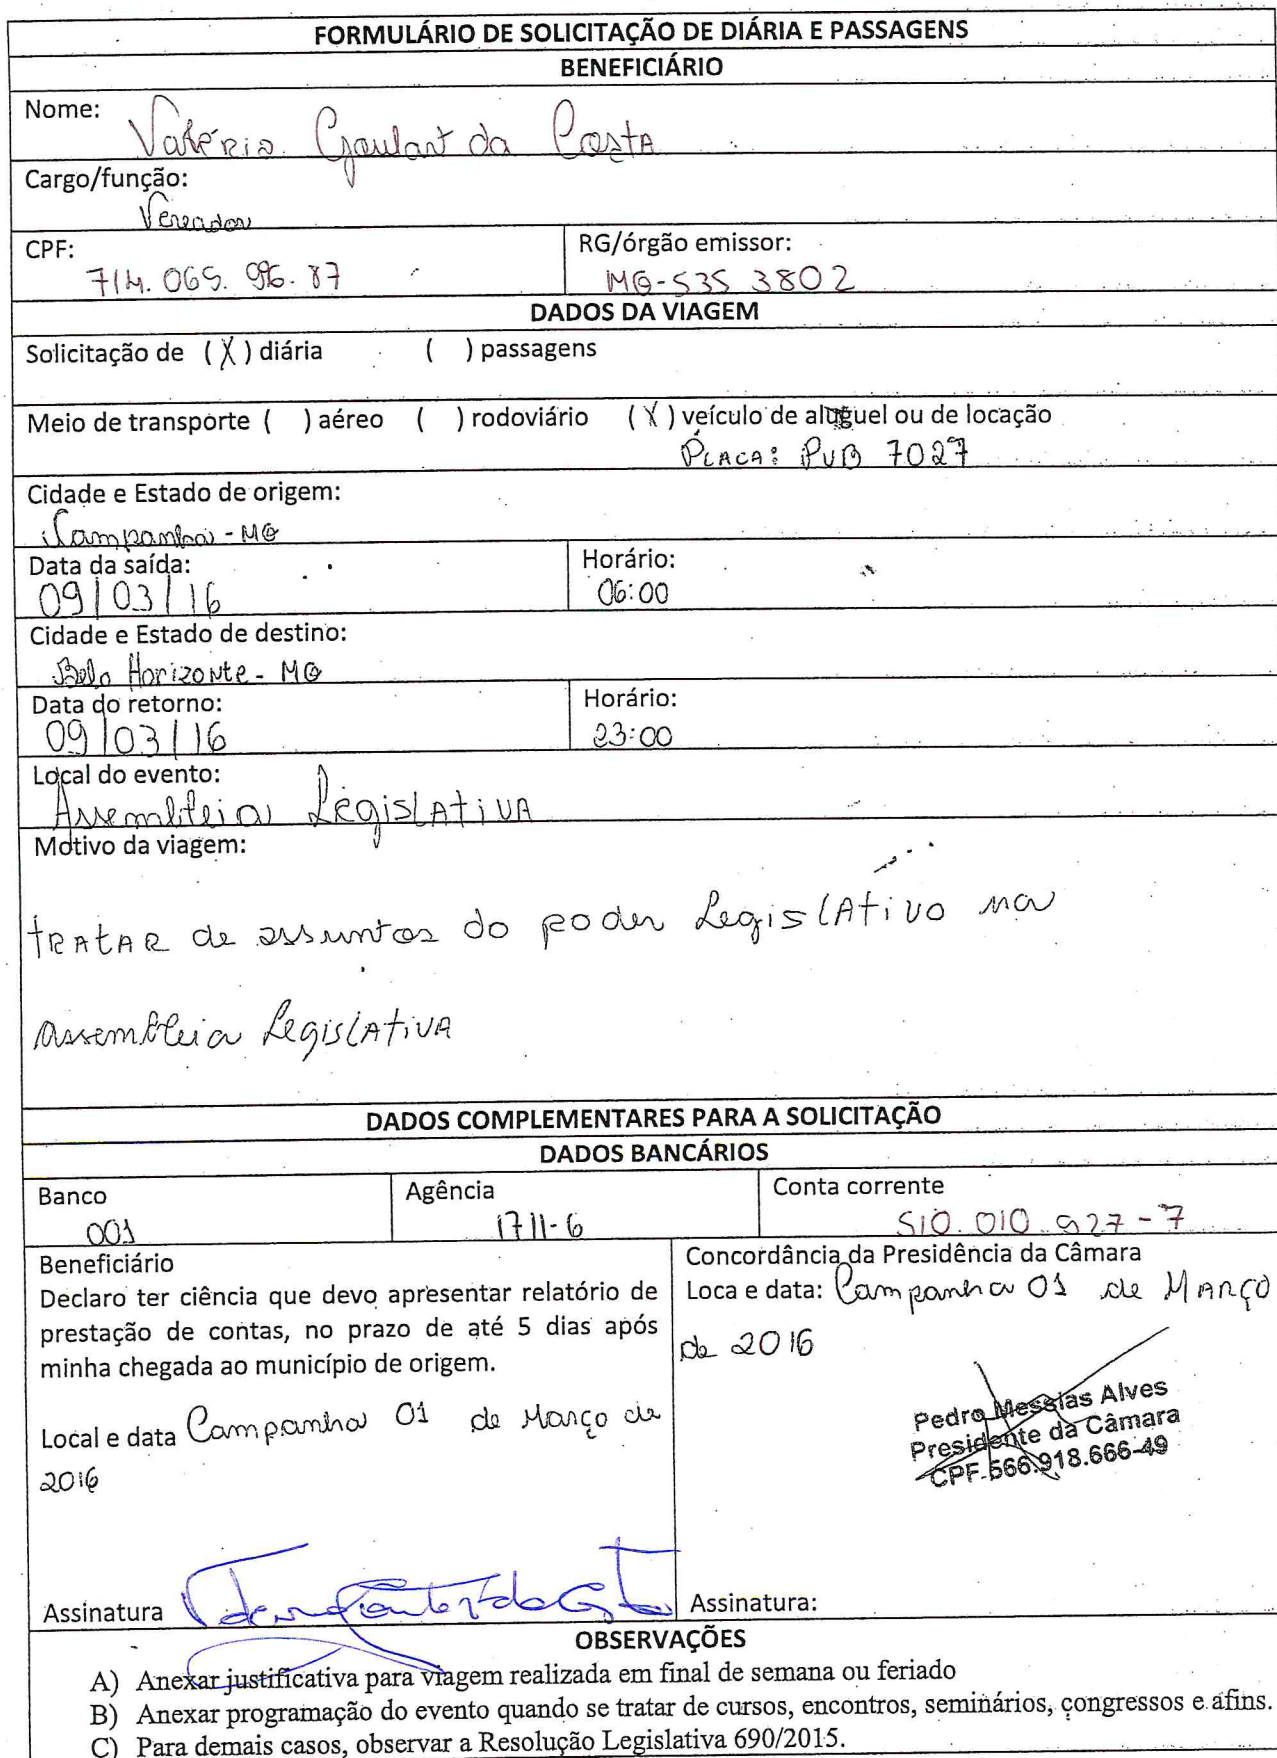 FORMULÁRIO DE SOLICITAÇÃO DE DIÁRIA E PASSAGENS
BENEFICIÁRIO
Nome:
Valério Goulart da Costa
Cargo/função:
Vereador
CPF: RG/órgão emissor:
MG-535 3802
DADOS DA VIAGEM
Solicitação de (X) diária ( ) passagens
Meio de transporte ( ) aéreo ( ) rodoviário (X) veículo de aluguel ou de locação
PLACA: PUB 7027
Cidade e Estado de origem:
Campanha - MG
Data da saída: Horário:
09/03/16 06:00
Cidade e Estado de destino:
Belo Horizonte - MG
Data do retorno: Horário:
09/03/16 23:00
Local do evento:
Assembleia Legislativa
Motivo da viagem:
tratar de assuntos do poder Legislativo na
assembleia Legislativa
DADOS COMPLEMENTARES PARA A SOLICITAÇÃO
DADOS BANCÁRIOS
Banco Agência Conta corrente
001 1711-6 510.010.927-7
Beneficiário
Declaro ter ciência que devo apresentar relatório de
prestação de contas, no prazo de até 5 dias após
minha chegada ao município de origem.
Local e data Campanha 01 de Março de
2016
Assinatura
Concordância da Presidência da Câmara
Loca e data: Campanha 01 de Março
de 2016
Pedro Messias Alves
Presidente da Câmara
CPF 566.918.666-49
Assinatura:
OBSERVAÇÕES
A) Anexar justificativa para viagem realizada em final de semana ou feriado
B) Anexar programação do evento quando se tratar de cursos, encontros, seminários, congressos e afins.
C) Para demais casos, observar a Resolução Legislativa 690/2015.